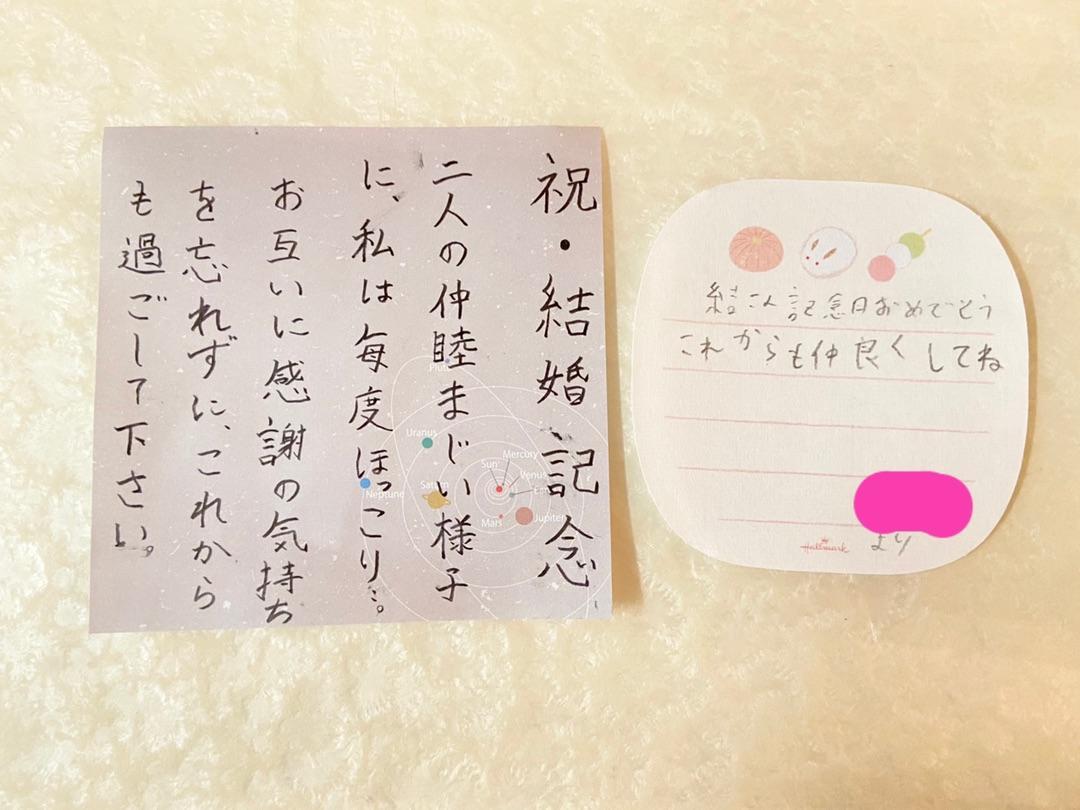 祝・結婚記念
二人の仲睦まじい様子
に、私は毎度ほっこり…。
お互いに感謝の気持ち
を忘れずに、これから
も過ごして下さい。
Pluto
Uranus
Mercury
Sun
Venus
Saturn
Neptune
Mars
Jupiter
結こん記念日おめでとう
これからも仲良くしてね
より
Hallmark